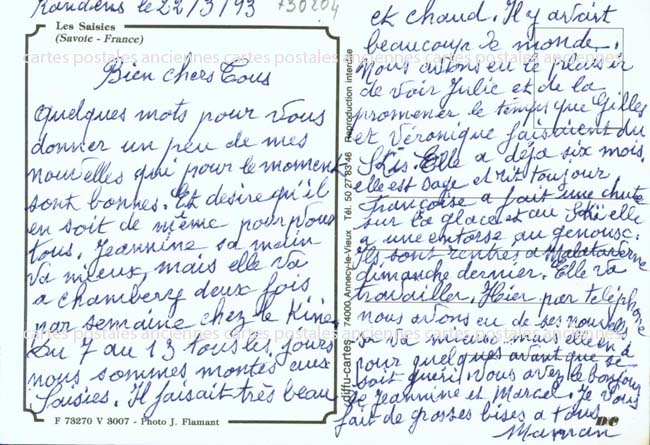 Randens le 22/3/93
730204
Les Saisies
(Savoie - France)
Bien chers Tous
Quelques mots pour vous
donner un peu de mes
nouvelles qui pour le moment
sont bonnes. Et désire qu'il
en soit de même pour vous
tous. Jeannine sa main
va mieux, mais elle va
a chambery deux fois
par semaine chez le Kiné
Du 7 au 13 tous les jours
nous sommes montés aux
Saisies. Il faisait très beau
F 73270 V 3007 - Photo J. Flamant
diffu-cartes 74000 Annecy-le-Vieux Tél. 50 27 83 46 Reproduction interdite
et chaud. Il y avait
beaucoup de monde.
Nous avons eu le plaisir
de voir Julie et de la
promener le temps que Gilles
et Véronique faisaient du
Skis. Elle a déja six mois.
elle est sage et rit toujour
Françoise a fait une chute
sur la glace et au Ski elle
a une entorse au genousc.
Ils sont rentres a Malataverne
dimanche dernier. Elle va
travailler. Hier par teléphone
nous avons eu de ses nouvelles
sa va mieux mais elle en a
pour quelques avant que se
soit guéri. Vous avez le bonjour
de Jeannine et Marcel. Je vous
fait de grosses bises a tous
Maman
DC
cartes postales anciennes cartes postales anciennes cartes postales anciennes
cartes postales anciennes cartes postales anciennes cartes postales anciennes